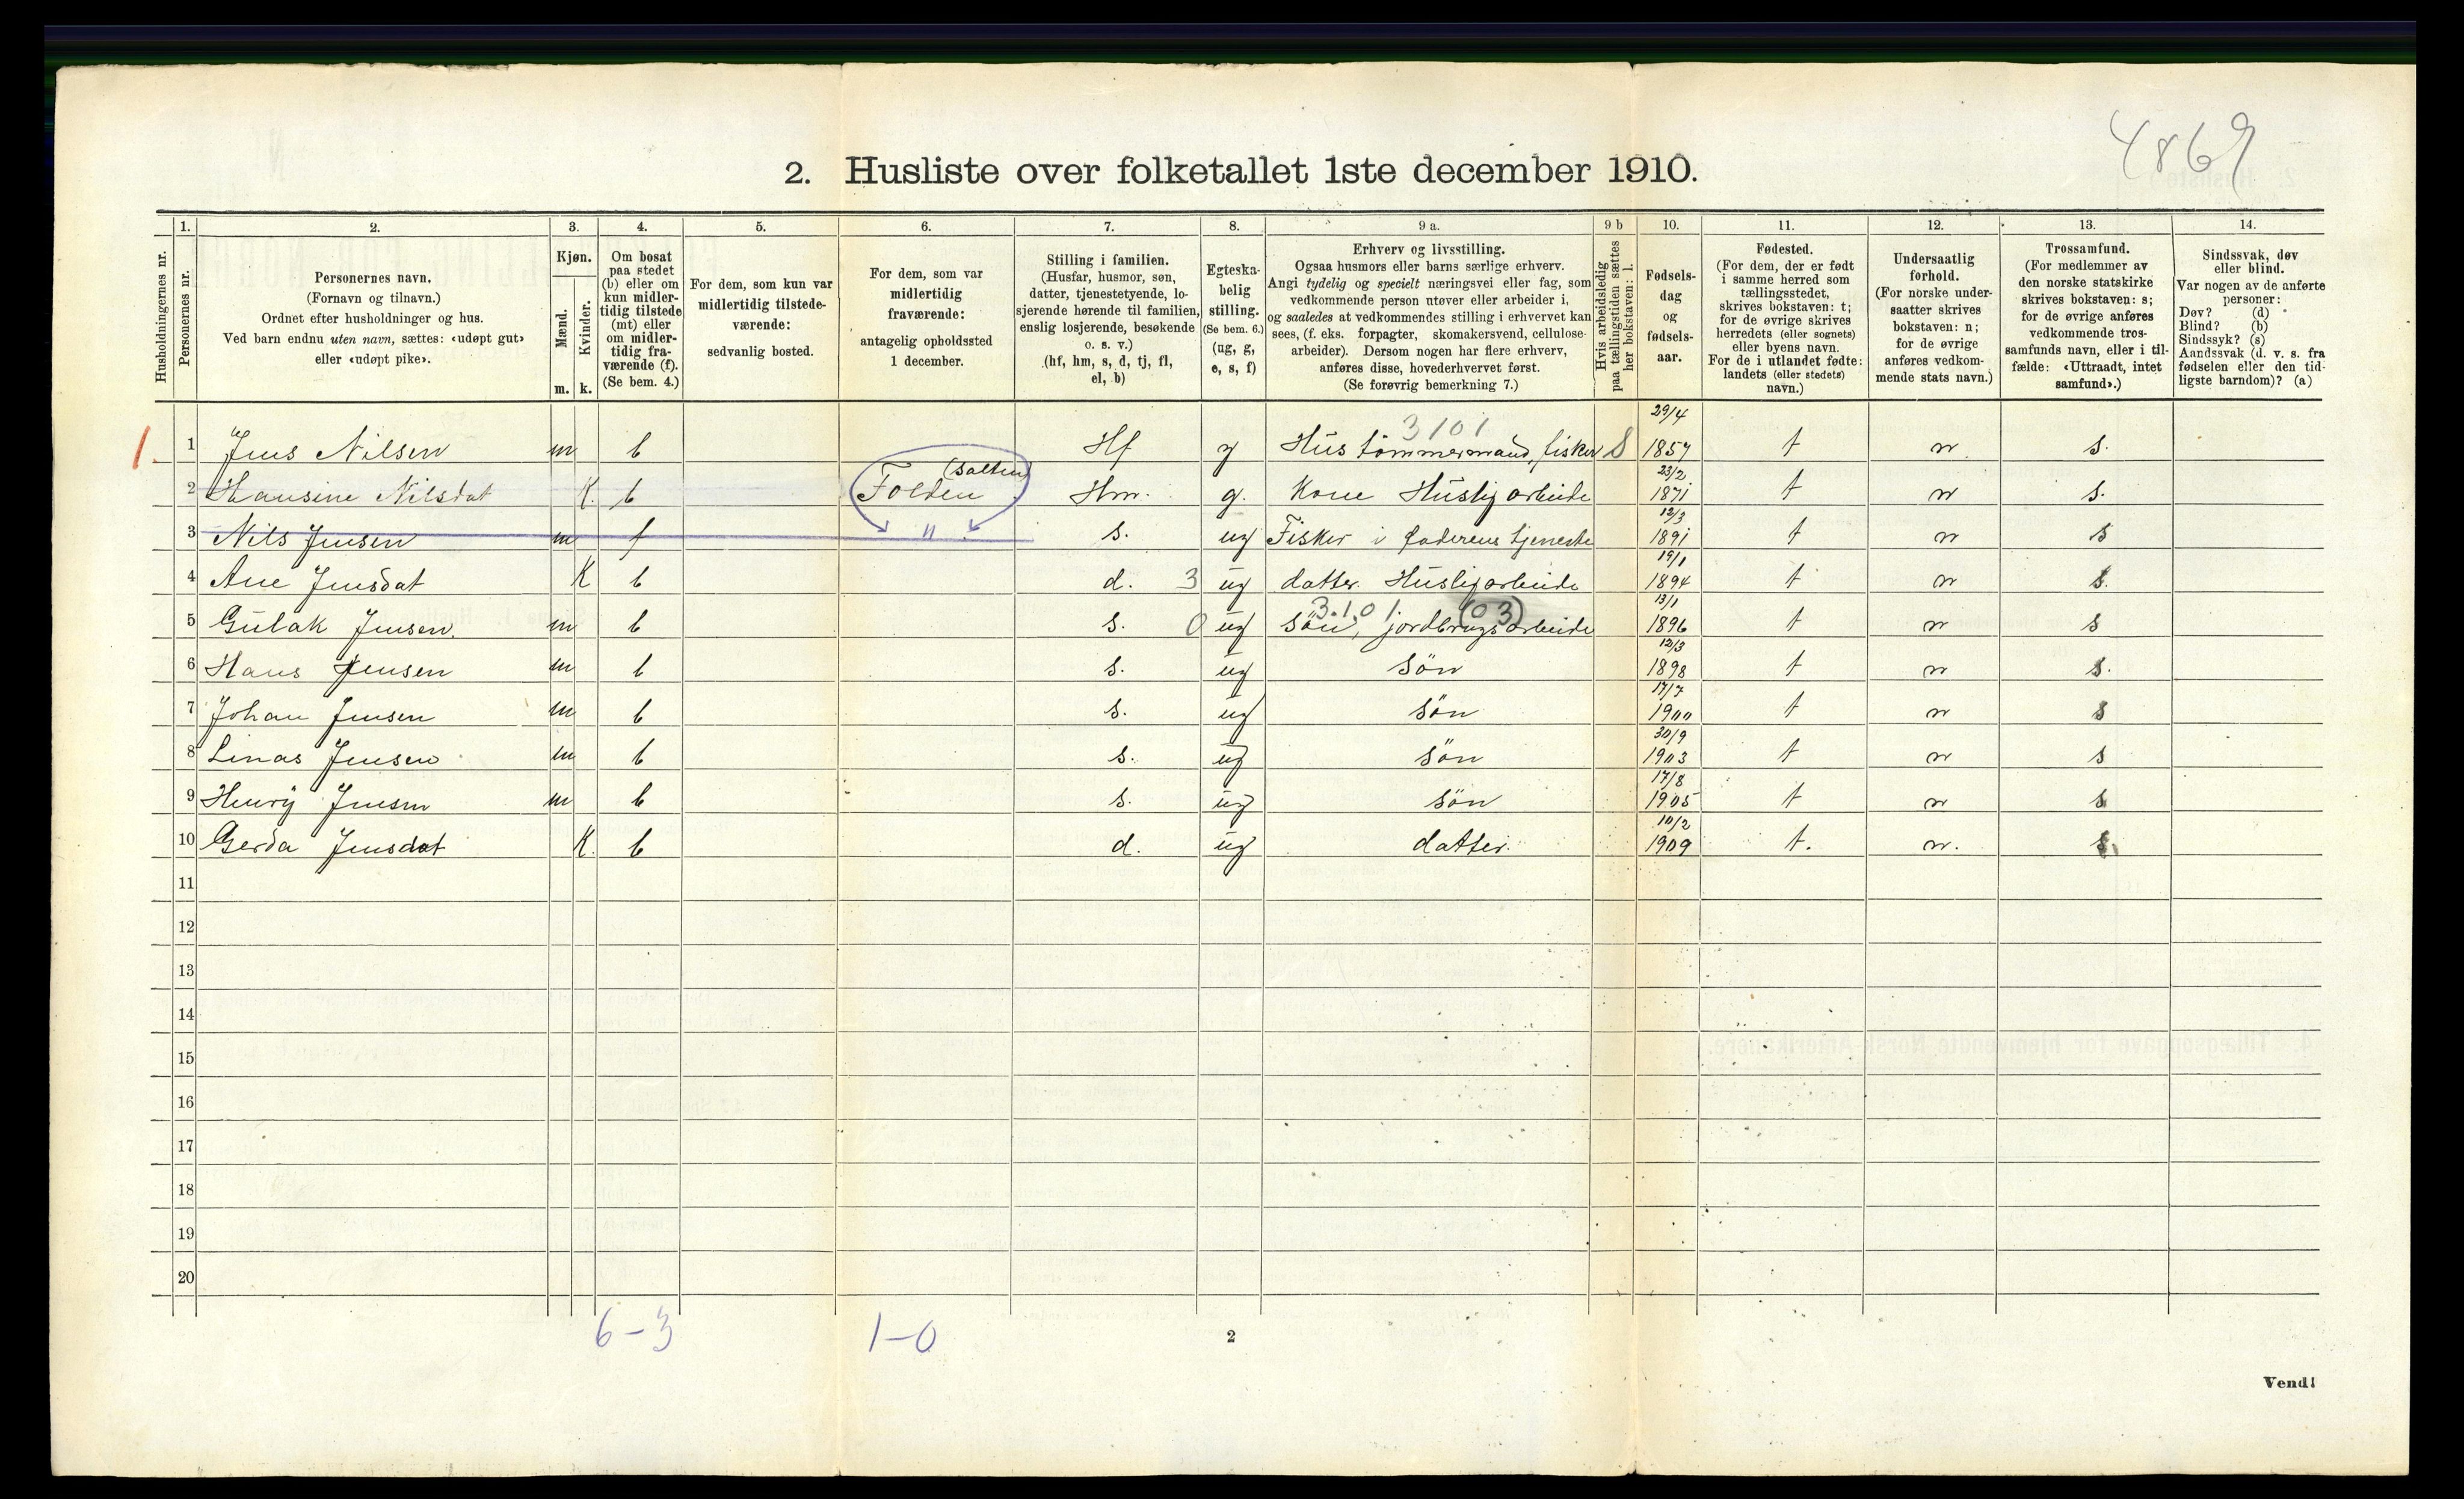 4869
2. Husliste over folketallet 1ste december 1910.
1. 2. 3. 4. 5. 6. 7. 8. 9 a. 9 b 10. 11. 12. 13. 14.
Husholdningernes nr.
Personernes nr.
Personernes navn.
(Fornavn og tilnavn.)
Ordnet efter husholdninger og hus.
Ved barn endnu uten navn, sættes: «udøpt gut»
eller «udøpt pike».
Kjøn.
Mænd.
Kvinder.
m. k.
Om bosat
paa stedet
(b) eller om
kun midler-
tidig tilstede
(mt) eller
om midler-
tidig fra-
værende (f).
(Se bem. 4.)
For dem, som kun var
midlertidig tilstede-
værende:
sedvanlig bosted.
For dem, som var
midlertidig
fraværende:
antagelig opholdssted
1 december.
Stilling i familien.
(Husfar, husmor, søn,
datter, tjenestetyende, lo-
sjerende hørende til familien,
enslig losjerende, besøkende
o. s. v.)
(hf, hm, s, d, tj, fl,
el, b)
Egteska-
belig
stilling.
(Se bem. 6.)
(ug, g,
e, s, f)
Erhverv og livsstilling.
Ogsaa husmors eller barns særlige erhverv.
Angi tydelig og specielt næringsvei eller fag, som
vedkommende person utøver eller arbeider i,
og saaledes at vedkommendes stilling i erhvervet kan
sees, (f. eks. forpagter, skomakersvend, cellulose-
arbeider). Dersom nogen har flere erhverv,
anføres disse, hovederhvervet først.
(Se forøvrig bemerkning 7.)
Hvis arbeidsledig
paa tællingstiden sættes
her bokstaven: l.
Fødsels-
dag
og
fødsels-
aar.
Fødested.
(For dem, der er født
i samme herred som
tællingsstedet,
skrives bokstaven: t;
for de øvrige skrives
herredets (eller sognets)
eller byens navn.
For de i utlandet fødte:
landets (eller stedets)
navn.)
Undersaatlig
forhold.
(For norske under-
saatter skrives
bokstaven: n;
for de øvrige
anføres vedkom-
mende stats navn.)
Trossamfund.
(For medlemmer av
den norske statskirke
skrives bokstaven: s;
for de øvrige anføres
vedkommende tros-
samfunds navn, eller i til-
fælde: «Uttraadt, intet
samfund».)
Sindssvak, døv
eller blind.
Var nogen av de anførte
personer:
Døv? (d)
Blind? (b)
Sindssyk? (s)
Aandssvak (d. v. s. fra
fødselen eller den tid-
ligste barndom)? (a)
3101 29/4
1. 1 Jens Nilsen m b Hf g Hus tömmermand, fisker 1857 t n s.
(Salten) 23/2
2 Hansine Nilsdat K. b Folden Hm. g. Kone Huslig arbeide 1871 t n s.
12/3
3 Nils Jensen m f " s. ug Fisker i faderens tjeneste 1891 t n s
19/1
4 Ane Jensdat K b d. 3 ug datter. Huslig arbeide 1894 t n s.
3.1.01. (03) 13/1
5 Gulak Jensen. m b s. 0 ug sön, jordbrugsarbeide 1896 t n s
12/3
6 Hans Jensen m b s. ug sön 1898 t n s.
17/7
7 Johan Jensen m b s. ug sön 1900 t n s
30/9
8 Linas Jensen m b s. ug sön 1903 t n s
17/8
9 Henry Jensen m b s. ug sön 1905 t n s
10/2
10 Gerda Jensdat K. b d. ug datter 1909 t. n. s.
11
12
13
14
15
16
17
18
19
20
6-3 1-0
2
Vend!